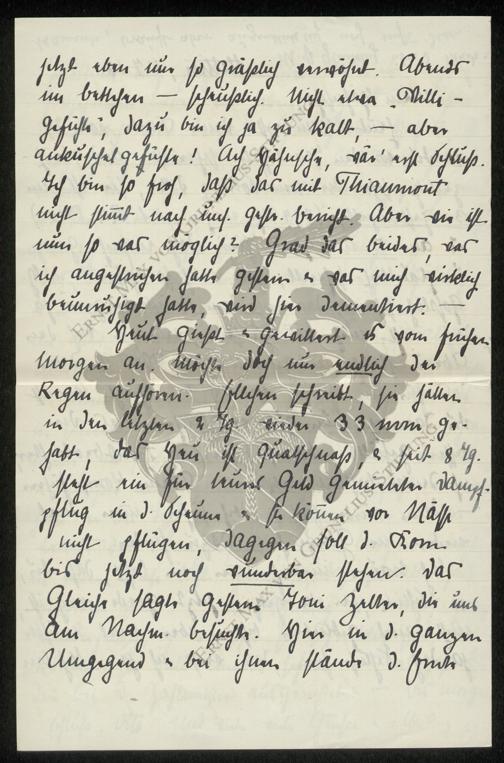 jetzt eben nur so gräßlich verwöhnt. Abends
im bettchen — scheußlich. Nicht etwa „Willi-
gefühle", dazu bin ich ja zu kalt, — aber
ankuschelgefühle! Ach Hähnsche, wär' erst Schluß.
Ich bin so froh, daß das mit Thiaumont
nicht stimmt nach uns. gestr. bericht. Aber wie ist
nun so was möglich? Grad das beides, was
ich angestrichen hatte gestern u was mich wirklich
beunruhigt hatte, wird hier dementiert. —
Heut gießt u gewittert es vom frühen
Morgen an. möchte doch nur endlich der
Regen aufhören. schreibt, sie hätten
in den letzten 2 Tg. wieder 33 mm ge-
habt, das Heu ist Quatschnaß, u seit 8 Tg.
steht ein für teures Geld gemieteter Dampf-
pflug in d. Scheune u sie können vor Nässe
nicht pflügen, dagegen soll d. Korn
bis jetzt noch wunderbar stehen. das
Gleiche sagte gestern Toni Zelter, die uns
am Nachm. besuchte. Hier in d. ganzen
Umgegend u bei ihnen stände d. Ernte
ERNST MAX VON GRUNELIUS-STIFTUNG
ERNST MAX VON GRUNELIUS-STIFTUNG